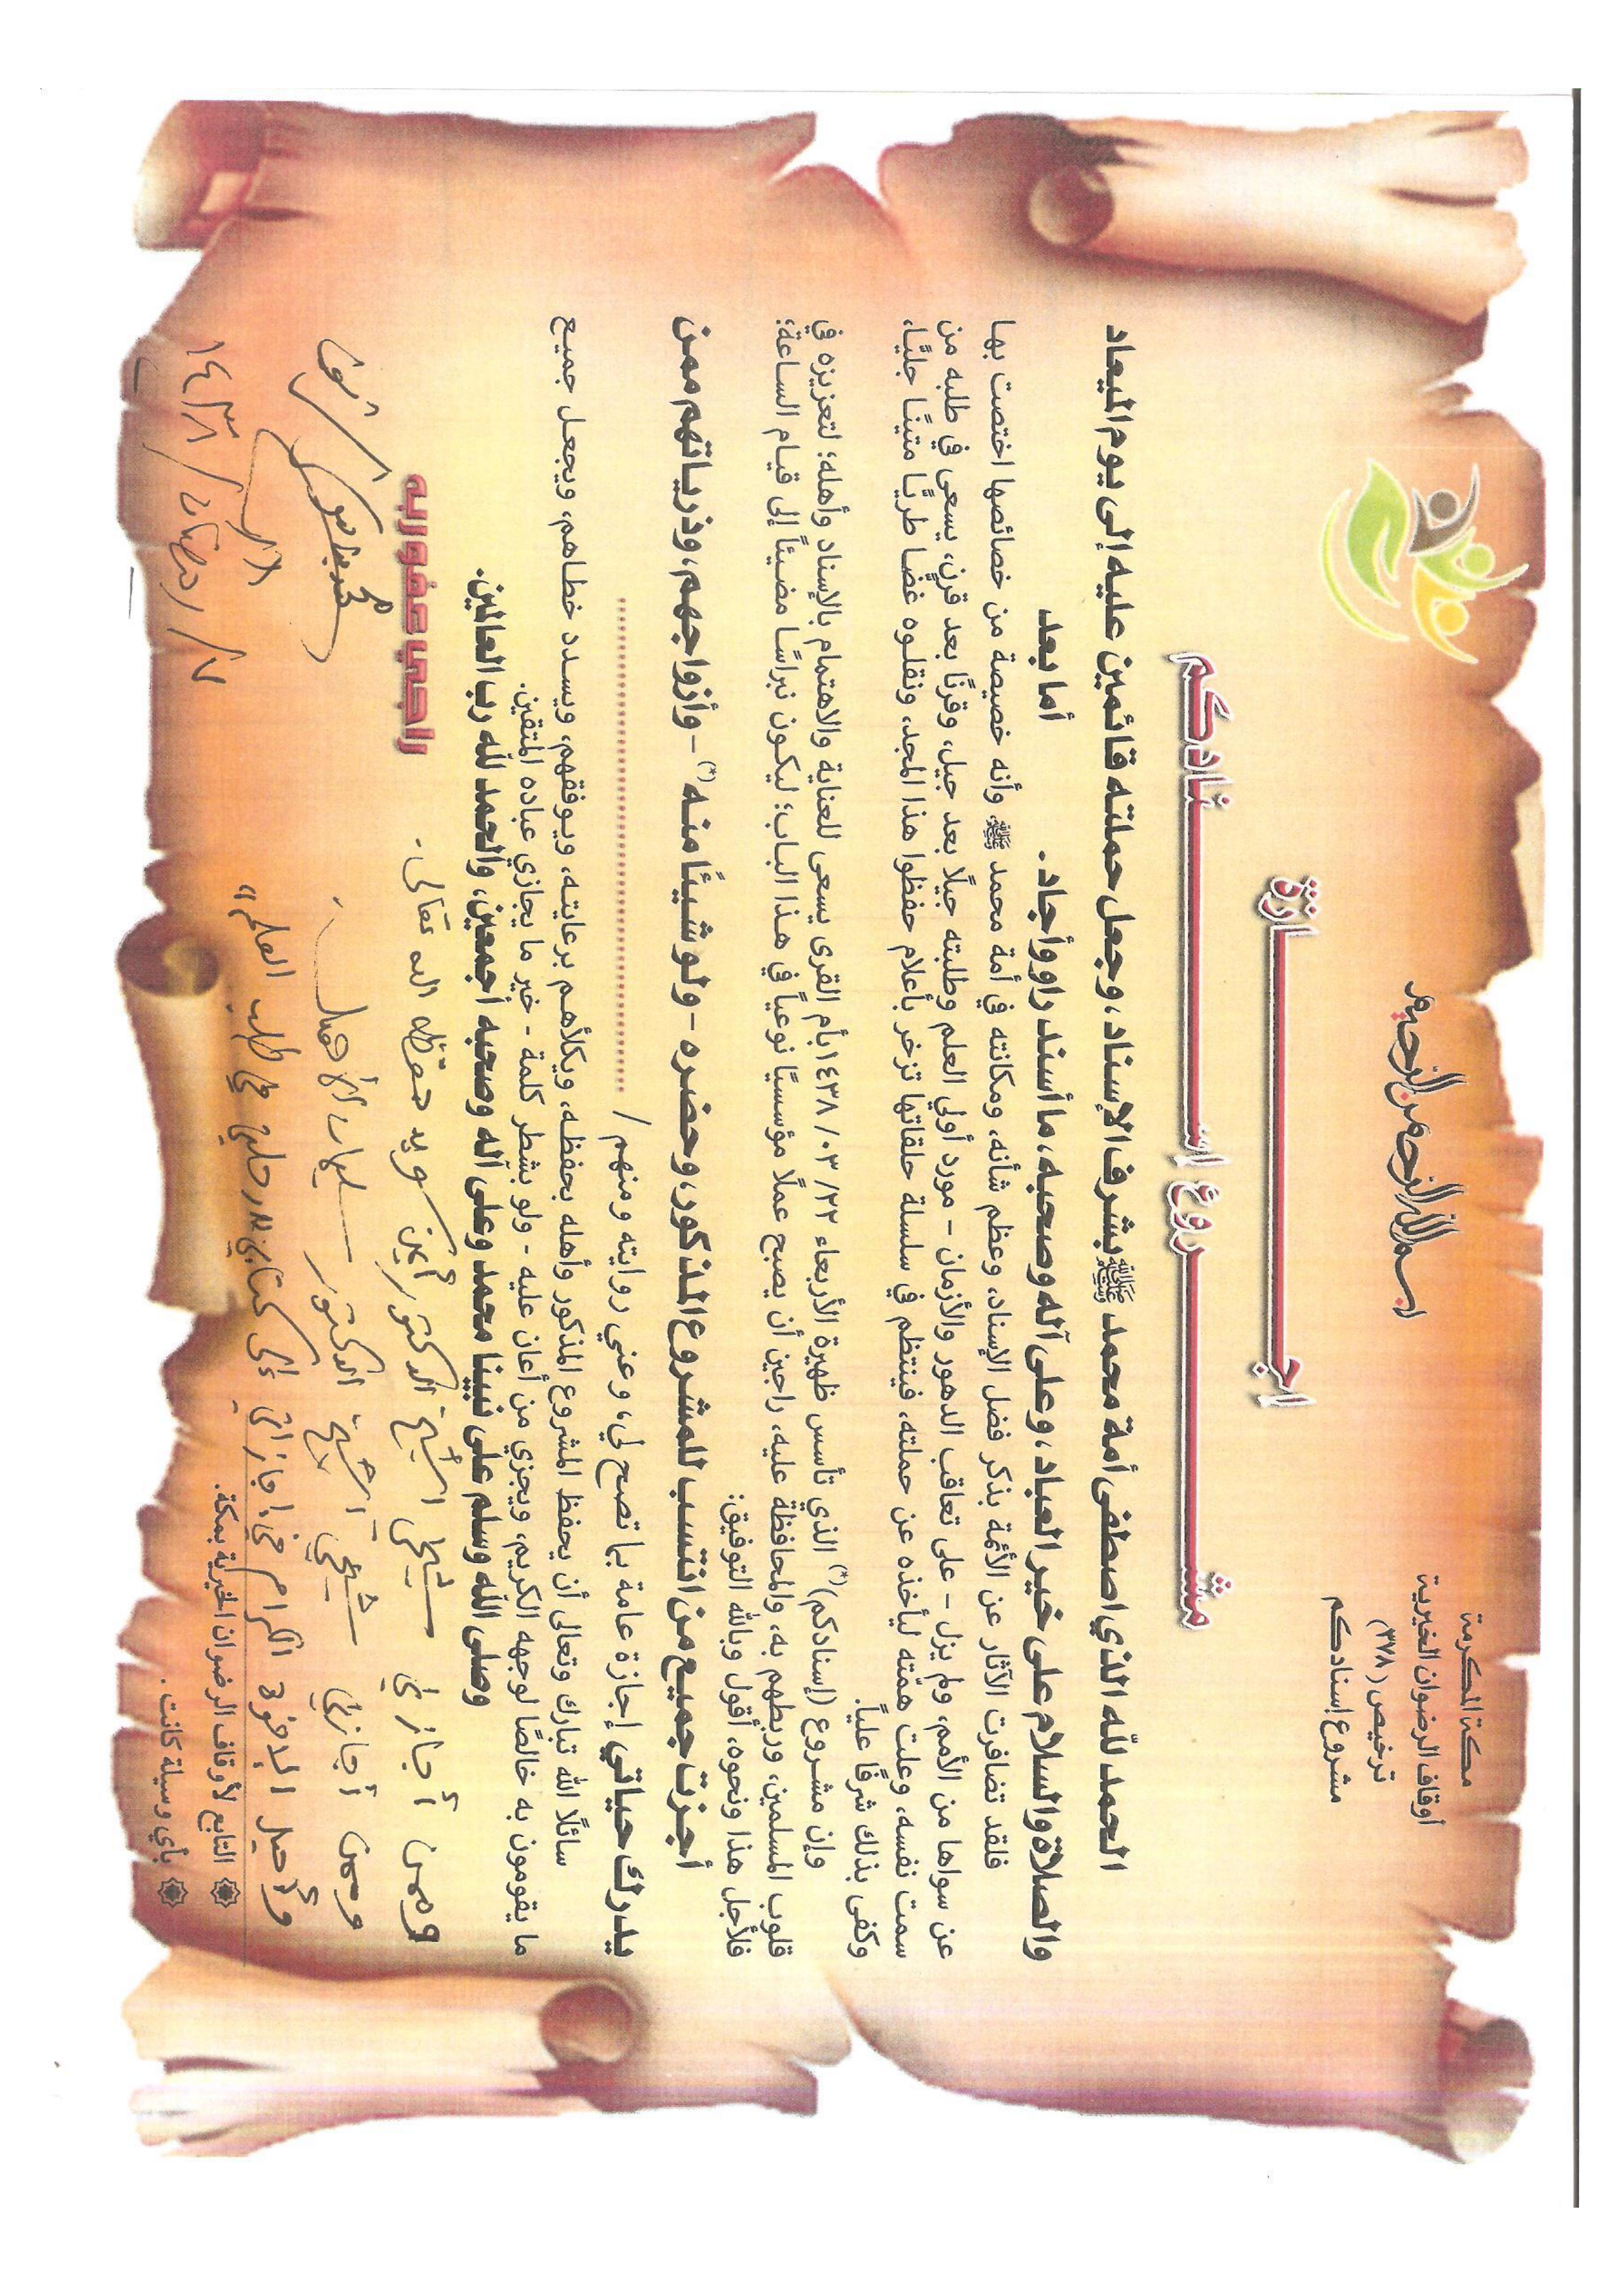 مكة المكرمة
أوقاف الرضوان الخيرية
ترخيص (٣٧٨)
مشروع إسنادكم
بسم الله الرحمن الرحيم
إجـــــــازة
مشـــــــروع إسـنـادكم
الحمد لله الذي اصطفى أمة محمد ﷺ بشرف الإسناد، وجعل حملته قائمين عليه إلى يوم الميعاد
والصلاة والسلام على خير العباد، وعلى آله وصحبه، ما أسند راو وأجاد. أما بعد
فلقد تضافرت الآثار عن الأئمة بذكر فضل الإسناد، وعظم شأنه، ومكانته في أمة محمد ﷺ، وأنه خصيصة من خصائصها اختصت بها
عن سواها من الأمم، ولم يزل - على تعاقب الدهور والأزمان - مورد أولي العلم وطلبته جيلًا بعد جيل، وقرنًا بعد قرن، يسعى في طلبه من
سمت نفسه، وعلت همّته ليأخذه عن حملته، فينتظم في سلسلة حلقاتها تزخر بأعلام حفظوا هذا المجد، ونقلوه غضًا طريًّا متينًا جليًّا،
وكفى بذلك شرفًا عليًا.
وإن مشروع (إسنادكم)(*) الذي تأسس ظهيرة الأربعاء ٢٢/ ٠٣/ ١٤٣٨ بأم القرى يسعى للعناية والاهتمام بالإسناد وأهله؛ لتعزيزه في
قلوب المسلمين، وربطهم به، والمحافظة عليه، راجين أن يصبح عملًا مؤسسيًا نوعياً في هذا الباب؛ ليكون نبراسًا مضيئاً إلى قيام الساعة؛
فلأجل هذا ونحوه، أقول وبالله التوفيق:
أجزت جميع من انتسب للمشروع المذكور، وحضره - ولو شيئًا منه(*) - وأزواجهم، وذرياتهم ممن
يدرك حياتي إجازة عامة بما تصح لي، وعني روايته ومنهم / ..............................
سائلًا الله تبارك وتعالى أن يحفظ المشروع المذكور وأهله بحفظه، ويكلأهم برعايته، ويوفقهم، ويسدد خطاهم، ويجعل جميع
ما يقومون به خالصًا لوجهه الكريم، ويجزي من أعان عليه - ولو بشطر كلمة - خير ما يجازي عباده المتقين.
وصلى الله وسلم على نبينا محمد وعلى آله وصحبه أجمعين، والحمد لله رب العالمين.
وممن أجازني شيخي الشيخ الدكتور أيمن سويد حفظه الله تعالى.
راجي عفو ربه
وممن أجازني شيخي الشيخ الدكتور
وأحيل الإخوة الكرام في إجازاتي إلى كتابي في طلب العلم"
٢٧/رمضان/١٤٣٨
❁ التابع لأوقاف الرضوان الخيرية بمكة.
❁ بأي وسيلة كانت.